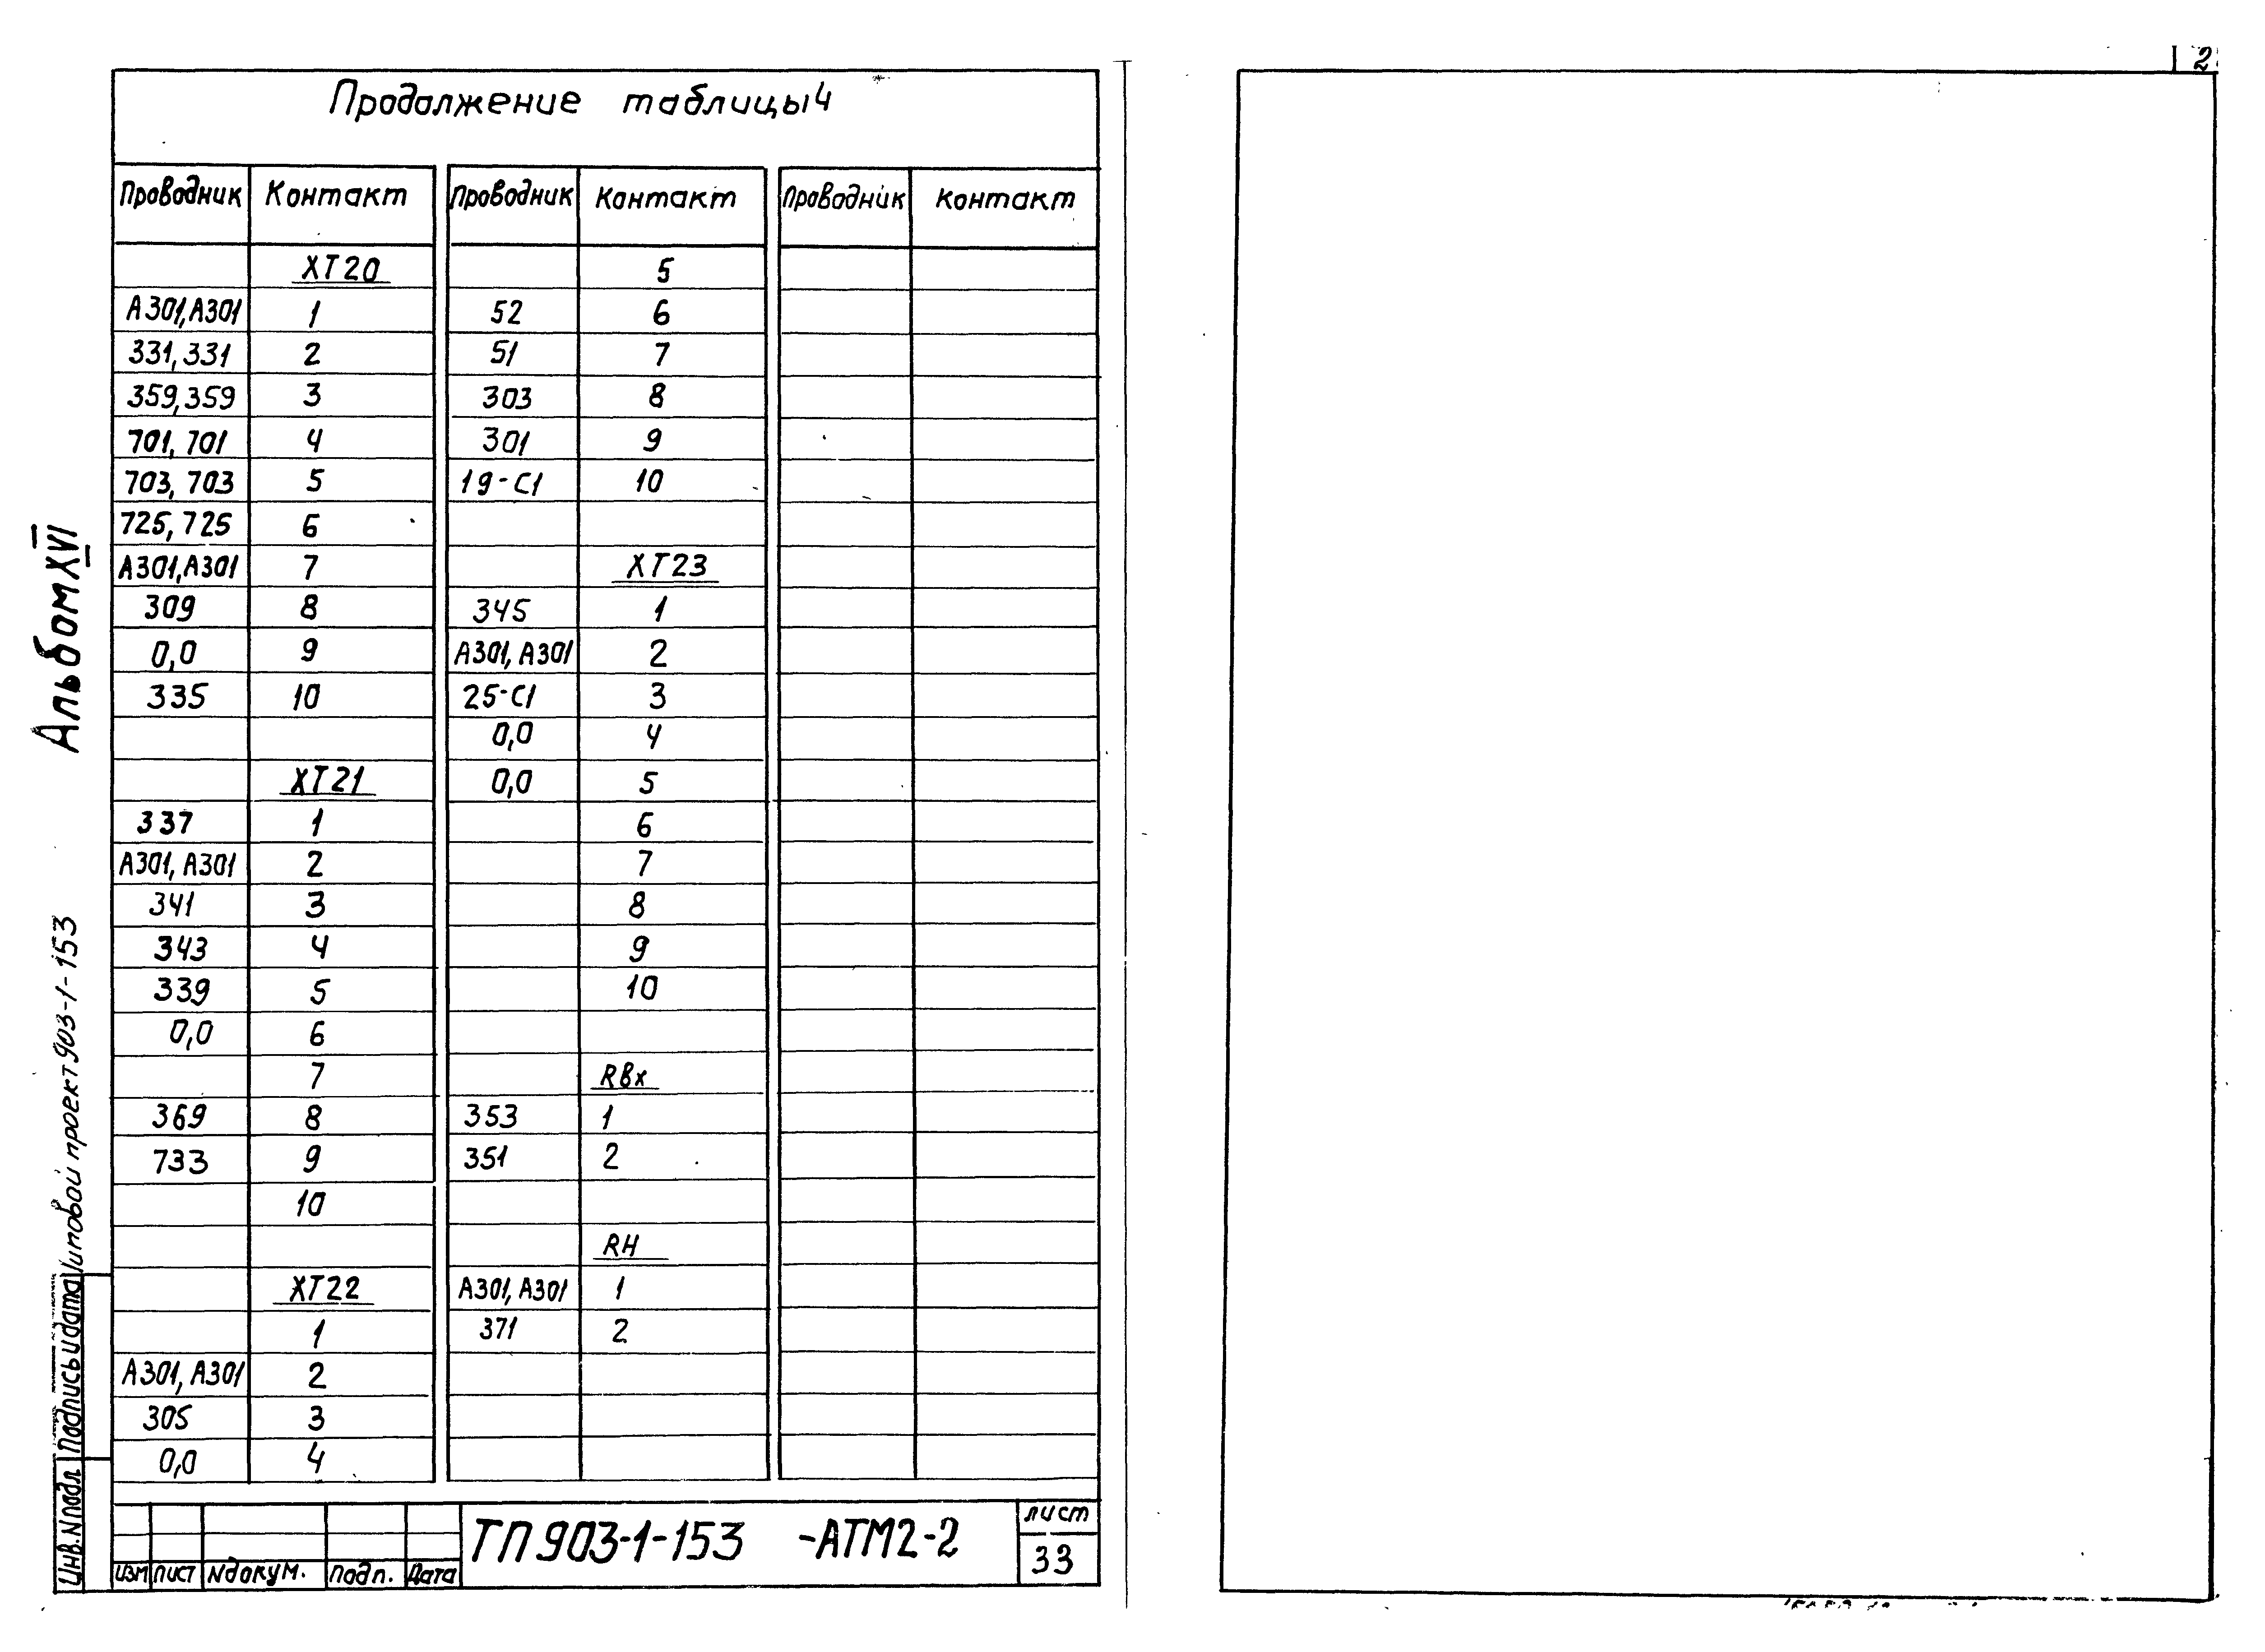 2
Продолжение таблицы 4
Проводник Контакт Проводник Контакт Проводник Контакт
ХТ20 5
А301,А301 1 52 6
331,331 2 51 7
359,359 3 303 8
701,701 4 301 9
703,703 5 19-С1 10
725,725 6
А301,А301 7 ХТ23
309 8 345 1
0,0 9 А301,А301 2
335 10 25-С1 3
0,0 4
ХТ21 0,0 5
337 1 6
А301,А301 2 7
341 3 8
343 4 9
339 5 10
0,0 6
7 Rвх
369 8 353 1
733 9 351 2
10
RН
ХТ22 А301,А301 1
1 371 2
А301,А301 2
305 3
0,0 4
Альбом XVI
Типовой проект 903-1-153
Подпись и дата
Инв.N подл
ТП 903-1-153 -АТМ2-2
лист
33
изм лист N докум. подп. Дата